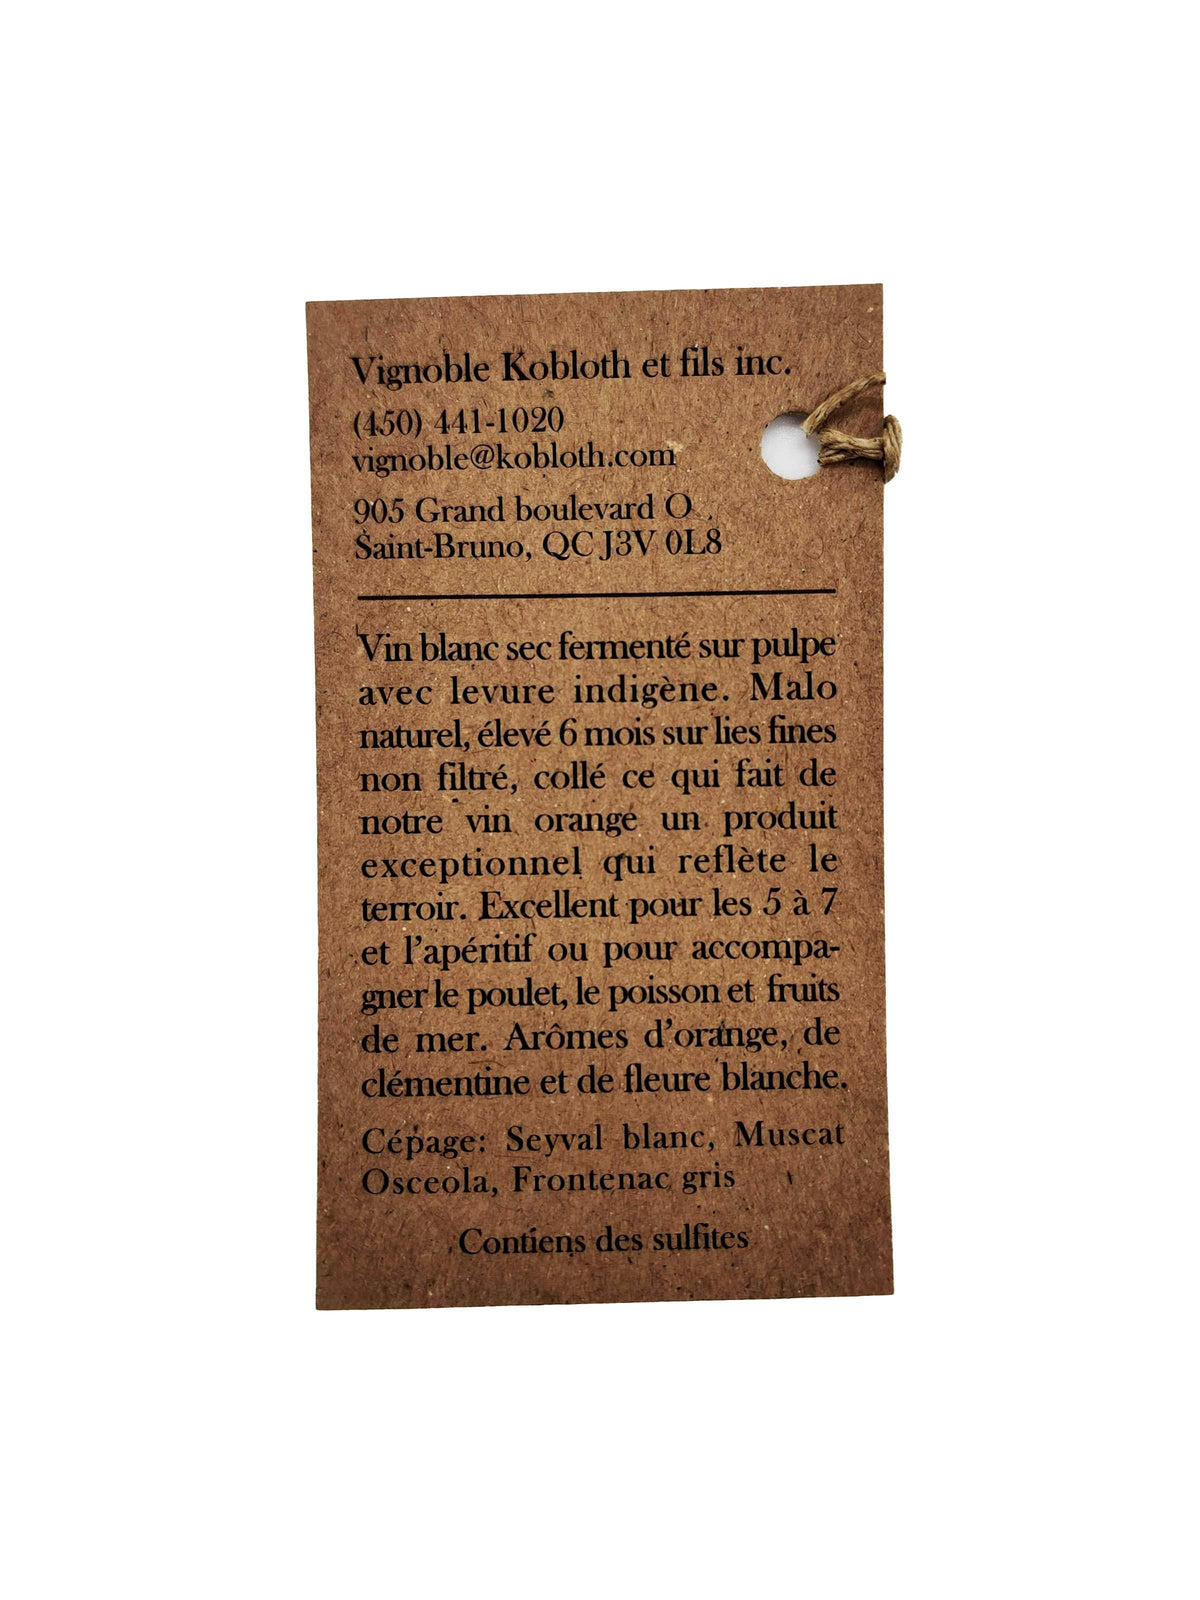 Vignoble Kobloth et fils inc.
(450) 441-1020
vignoble@kobloth.com
905 Grand boulevard O
Saint-Bruno, QC J3V 0L8
Vin blanc sec fermenté sur pulpe
avec levure indigène. Malo
naturel, élevé 6 mois sur lies fines
non filtré, collé ce qui fait de
notre vin orange un produit
exceptionnel qui reflète le
terroir. Excellent pour les 5 à 7
et l'apéritif ou pour accompa-
gner le poulet, le poisson et fruits
de mer. Arômes d'orange, de
clémentine et de fleure blanche.
Cépage: Seyval blanc, Muscat
Osceola, Frontenac gris
Contiens des sulfites